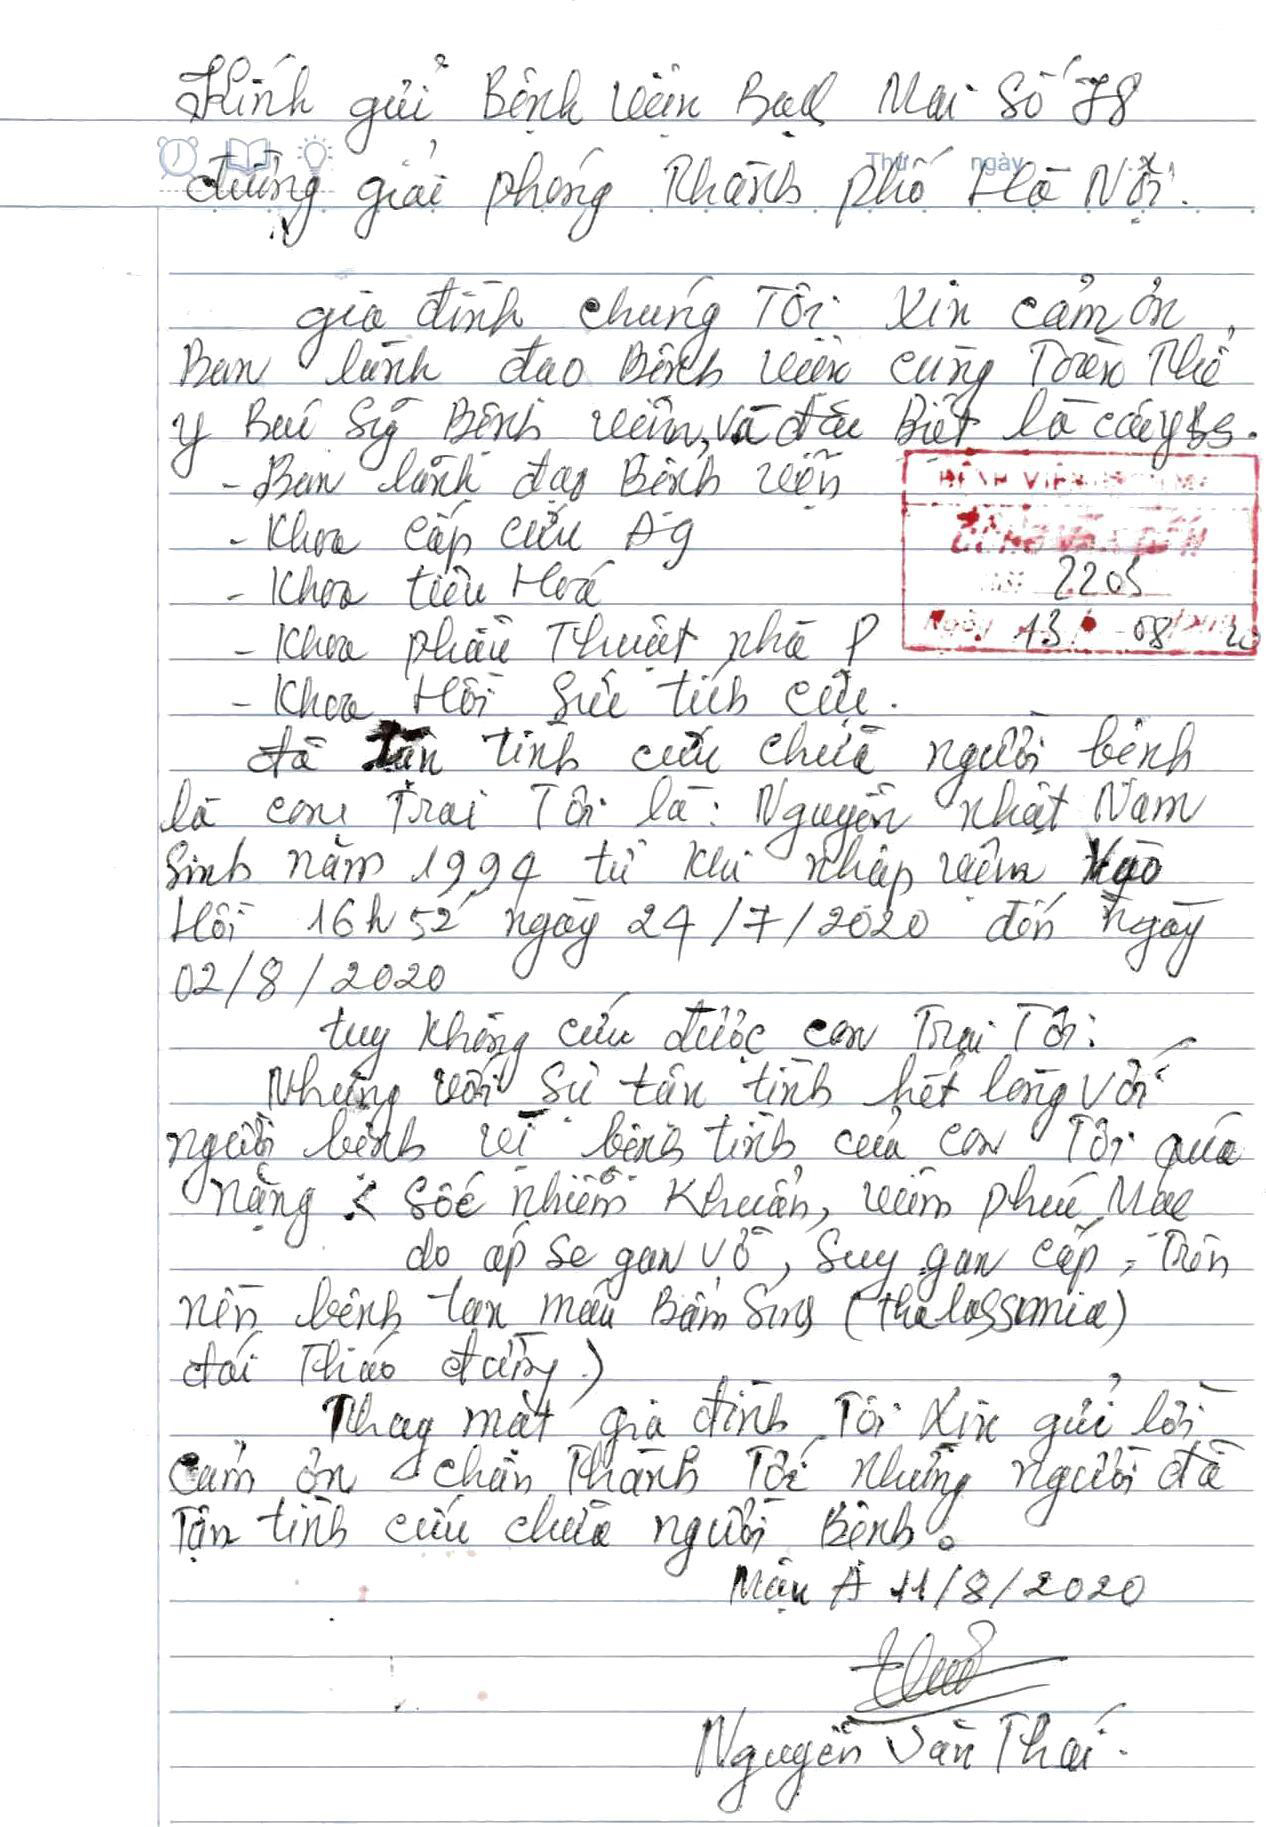 Kính gửi Bệnh viện Bạch Mai Số 78
Thứ ngày
đường giải phóng Thành phố Hà Nội.
gia đình chúng Tôi Xin cảm ơn
Ban lãnh đạo Bệnh viện cùng Toàn Thể
y Bác Sỹ Bệnh viện, và đặc Biệt là các
- Ban lãnh đạo Bệnh viện
BỆNH VIỆN BẠCH MAI
CÔNG VĂN ĐẾN
- Khoa cấp cứu A9
- Khoa tiêu Hoá
2205
- Khoa phẫu Thuật nhà P
Ngày 13 08 20
- Khoa Hồi Sức tích cực.
đã Tận tình cứu chữa người bệnh
là con Trai Tôi là: Nguyễn nhật Nam
Sinh năm 1994 từ khi nhập viện vào
Hồi 16h52 ngày 24/7/2020 đến ngày
02/8/2020
tuy không cứu được con Trai Tôi.
Nhưng với sự tận tình hết lòng với
người bệnh vì bệnh tình của con Tôi quá
nặng : Sốc nhiễm Khuẩn, viêm phúc Mạc
do áp se gan vỡ, Suy gan cấp, Trên
nền bệnh tan máu Bẩm Sinh (thalassemia)
đái Tháo đường)
Thay mặt gia đình Tôi Xin gửi lời
cảm ơn chân Thành Tới những người đã
Tận tình cứu chữa người Bệnh.
Mậu A 11/8/2020
Nguyễn Văn Thái.